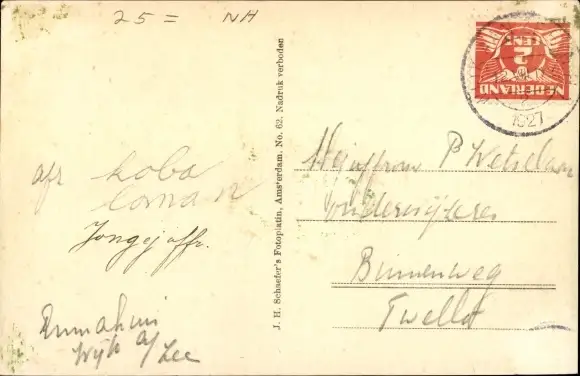 25 = NH
NEDERLAND
2
CENT
1927
J. H. Schaefer's Fotoplatin, Amsterdam, No. 62. Nadruk verboden
afz Koba
Jongejuffr.
Emmahuis
Wijk a/
Zee
Mejuffrouw P
onderwijzeres
Binnenweg
Twello